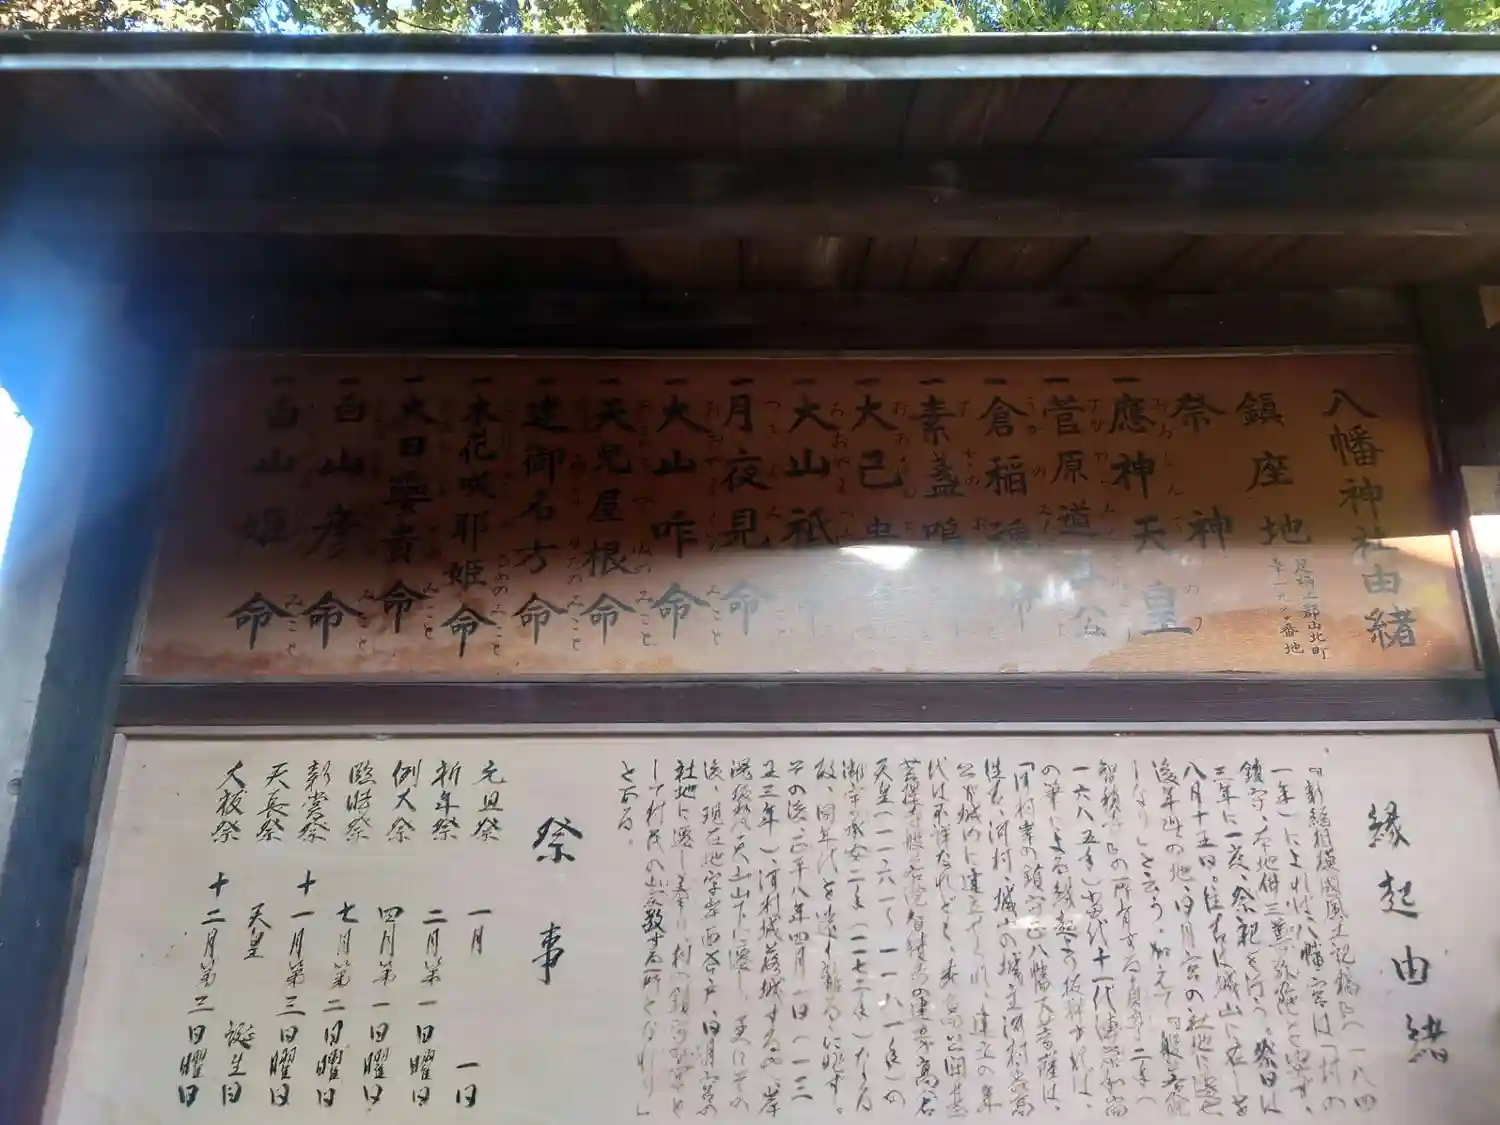 八幡神社由緒
鎮座地 足柄上郡山北町
岸一九八〇番地
祭神
一應神天皇
一菅原道真公
一倉稲魂命
一素盞嗚命
一大己貴命
一大山祇命
一月夜見命
一大山咋命
一天児屋根命
一建御名方命
一木花咲耶姫命
一大日孁貴命
一白山彦命
一白山姫命
縁起由緒
『新編相模国風土記稿』(一八四
一年)によれば、八幡宮は「村の
鎮守、本地佛三薫弥陀と安ず、
三年に一度、祭祀を行う。祭日は
八月十五日。往古は城山に在しを
後年此の地、白月宮の社地に遷せ
しなり」と云う。加えて『般若院
一六八五年)当代十一代
の筆による縁起の抜粋すれば、
「河村岸の鎮守正八幡大菩薩は、
往古、河村城山の城主河村
公が城内に建立せられ、建立の年
代は不詳なれども、秀高公開基
天皇(一一六一~一一八一年)の
御宇の承安二年(一一七二年)なる
故、同年代を遠く離るゝに非ず。
その後、正平八年四月一日(一三
五三年)、河村城落城する也、岸
湯坂 天山山下に遷し、更にその
後、現在地字岸西谷戸、白月宮の
社地に遷し奉り、村の鎮守
して村民の崇敬する所となれり」
とある。
祭事
元旦祭 一月 一日
祈年祭 二月第一日曜日
例大祭 四月第一日曜日
臨時祭 七月第二日曜日
新嘗祭 十一月第三日曜日
天長祭 天皇 誕生日
大祓祭 十二月第三日曜日